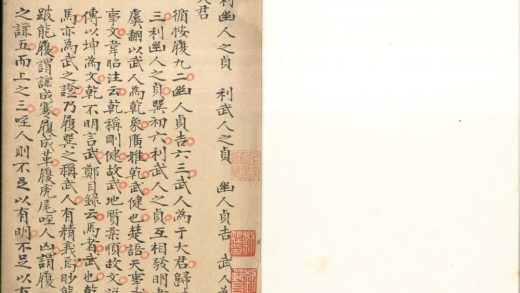 利幽人之貞　利武人之貞　幽人貞吉　武人為
大君
循按履九二幽人貞吉六三武人為于大君歸
三利幽人之貞巽初六利武人之貞互相發明者
虞翻以武人為乾象廣雅乾武健也楚語天事武
事文韋昭注云乾稱剛健故武地質柔順故文說
傳以坤為文乾不明言武鄭目錄云馬者武也乾
馬亦為武之證乃履巽之稱武人有精義焉眇能
跛能履謂謙成蹇履成革履虎尾咥人凶謂履
之謙五而上之三咥人則不足以有明不足以有